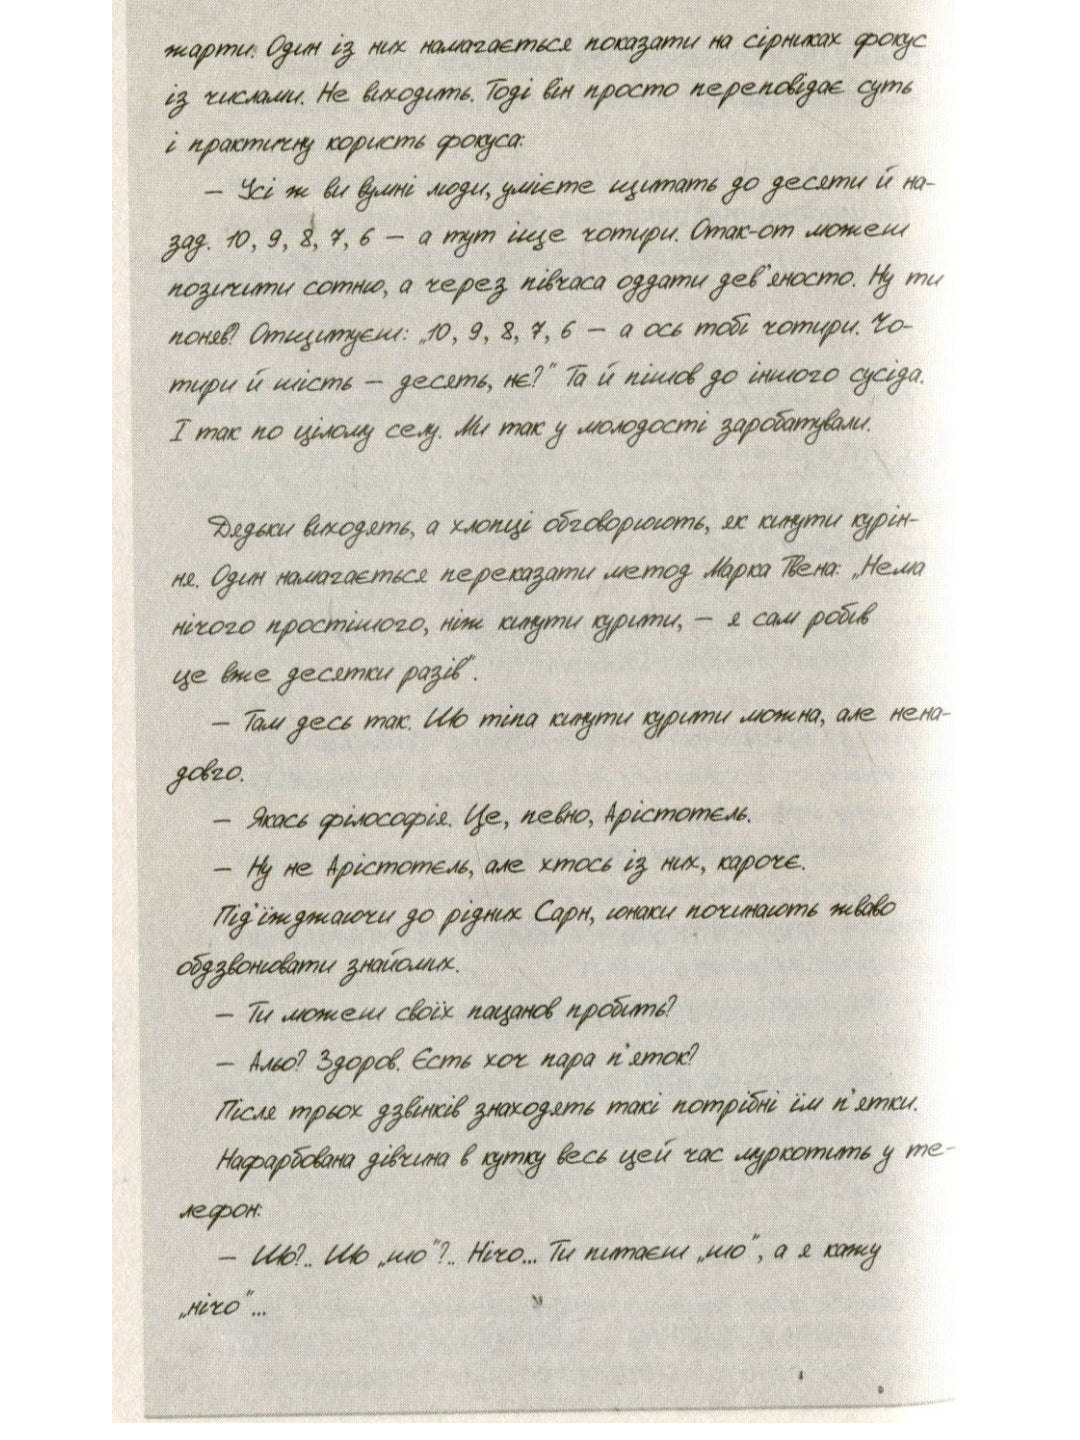 жарти. Один із них намагається показати на сірниках фокус
із числами. Не виходить. Тоді він просто переповідає суть
і практичну користь фокуса:
— Усі ж ви вумні люди, умієте щитать до десяти й на-
зад. 10, 9, 8, 7, 6 — а тут іще чотири. Отак-от можеш
позичити сотню, а через півчаса оддати дев'яносто. Ну ти
поняв? Отщитуєш: „10, 9, 8, 7, 6 — а ось тобі чотири. Чо-
тири й шість — десять, нє?" Та й пішов до іншого сусіда.
І так по цілому селу. Ми так у молодості заробатували.
Дядьки виходять, а хлопці обговорюють, як кинути курін-
ня. Один намагається переказати метод Марка Твена: „Нема
нічого простішого, ніж кинути курити, — я сам робив
це вже десятки разів".
— Там десь так. Шо тіпа кинути курити можна, але нена-
довго.
— Якась філософія. Це, певно, Арістотєль.
— Ну не Арістотєль, але хтось із них, карочє.
Під'їжджаючи до рідних Сарн, юнаки починають жваво
обдзвонювати знайомих.
— Ти можеш своїх пацанов пробить?
— Альо? Здоров. Єсть хоч пара п'яток?
Після трьох дзвінків знаходять такі потрібні їм п'ятки.
Нафарбована дівчина в кутку весь цей час муркотить у те-
лефон:
— Шо?.. Шо „шо"?.. Нічо... Ти питаєш „шо", а я кажу
„нічо"...